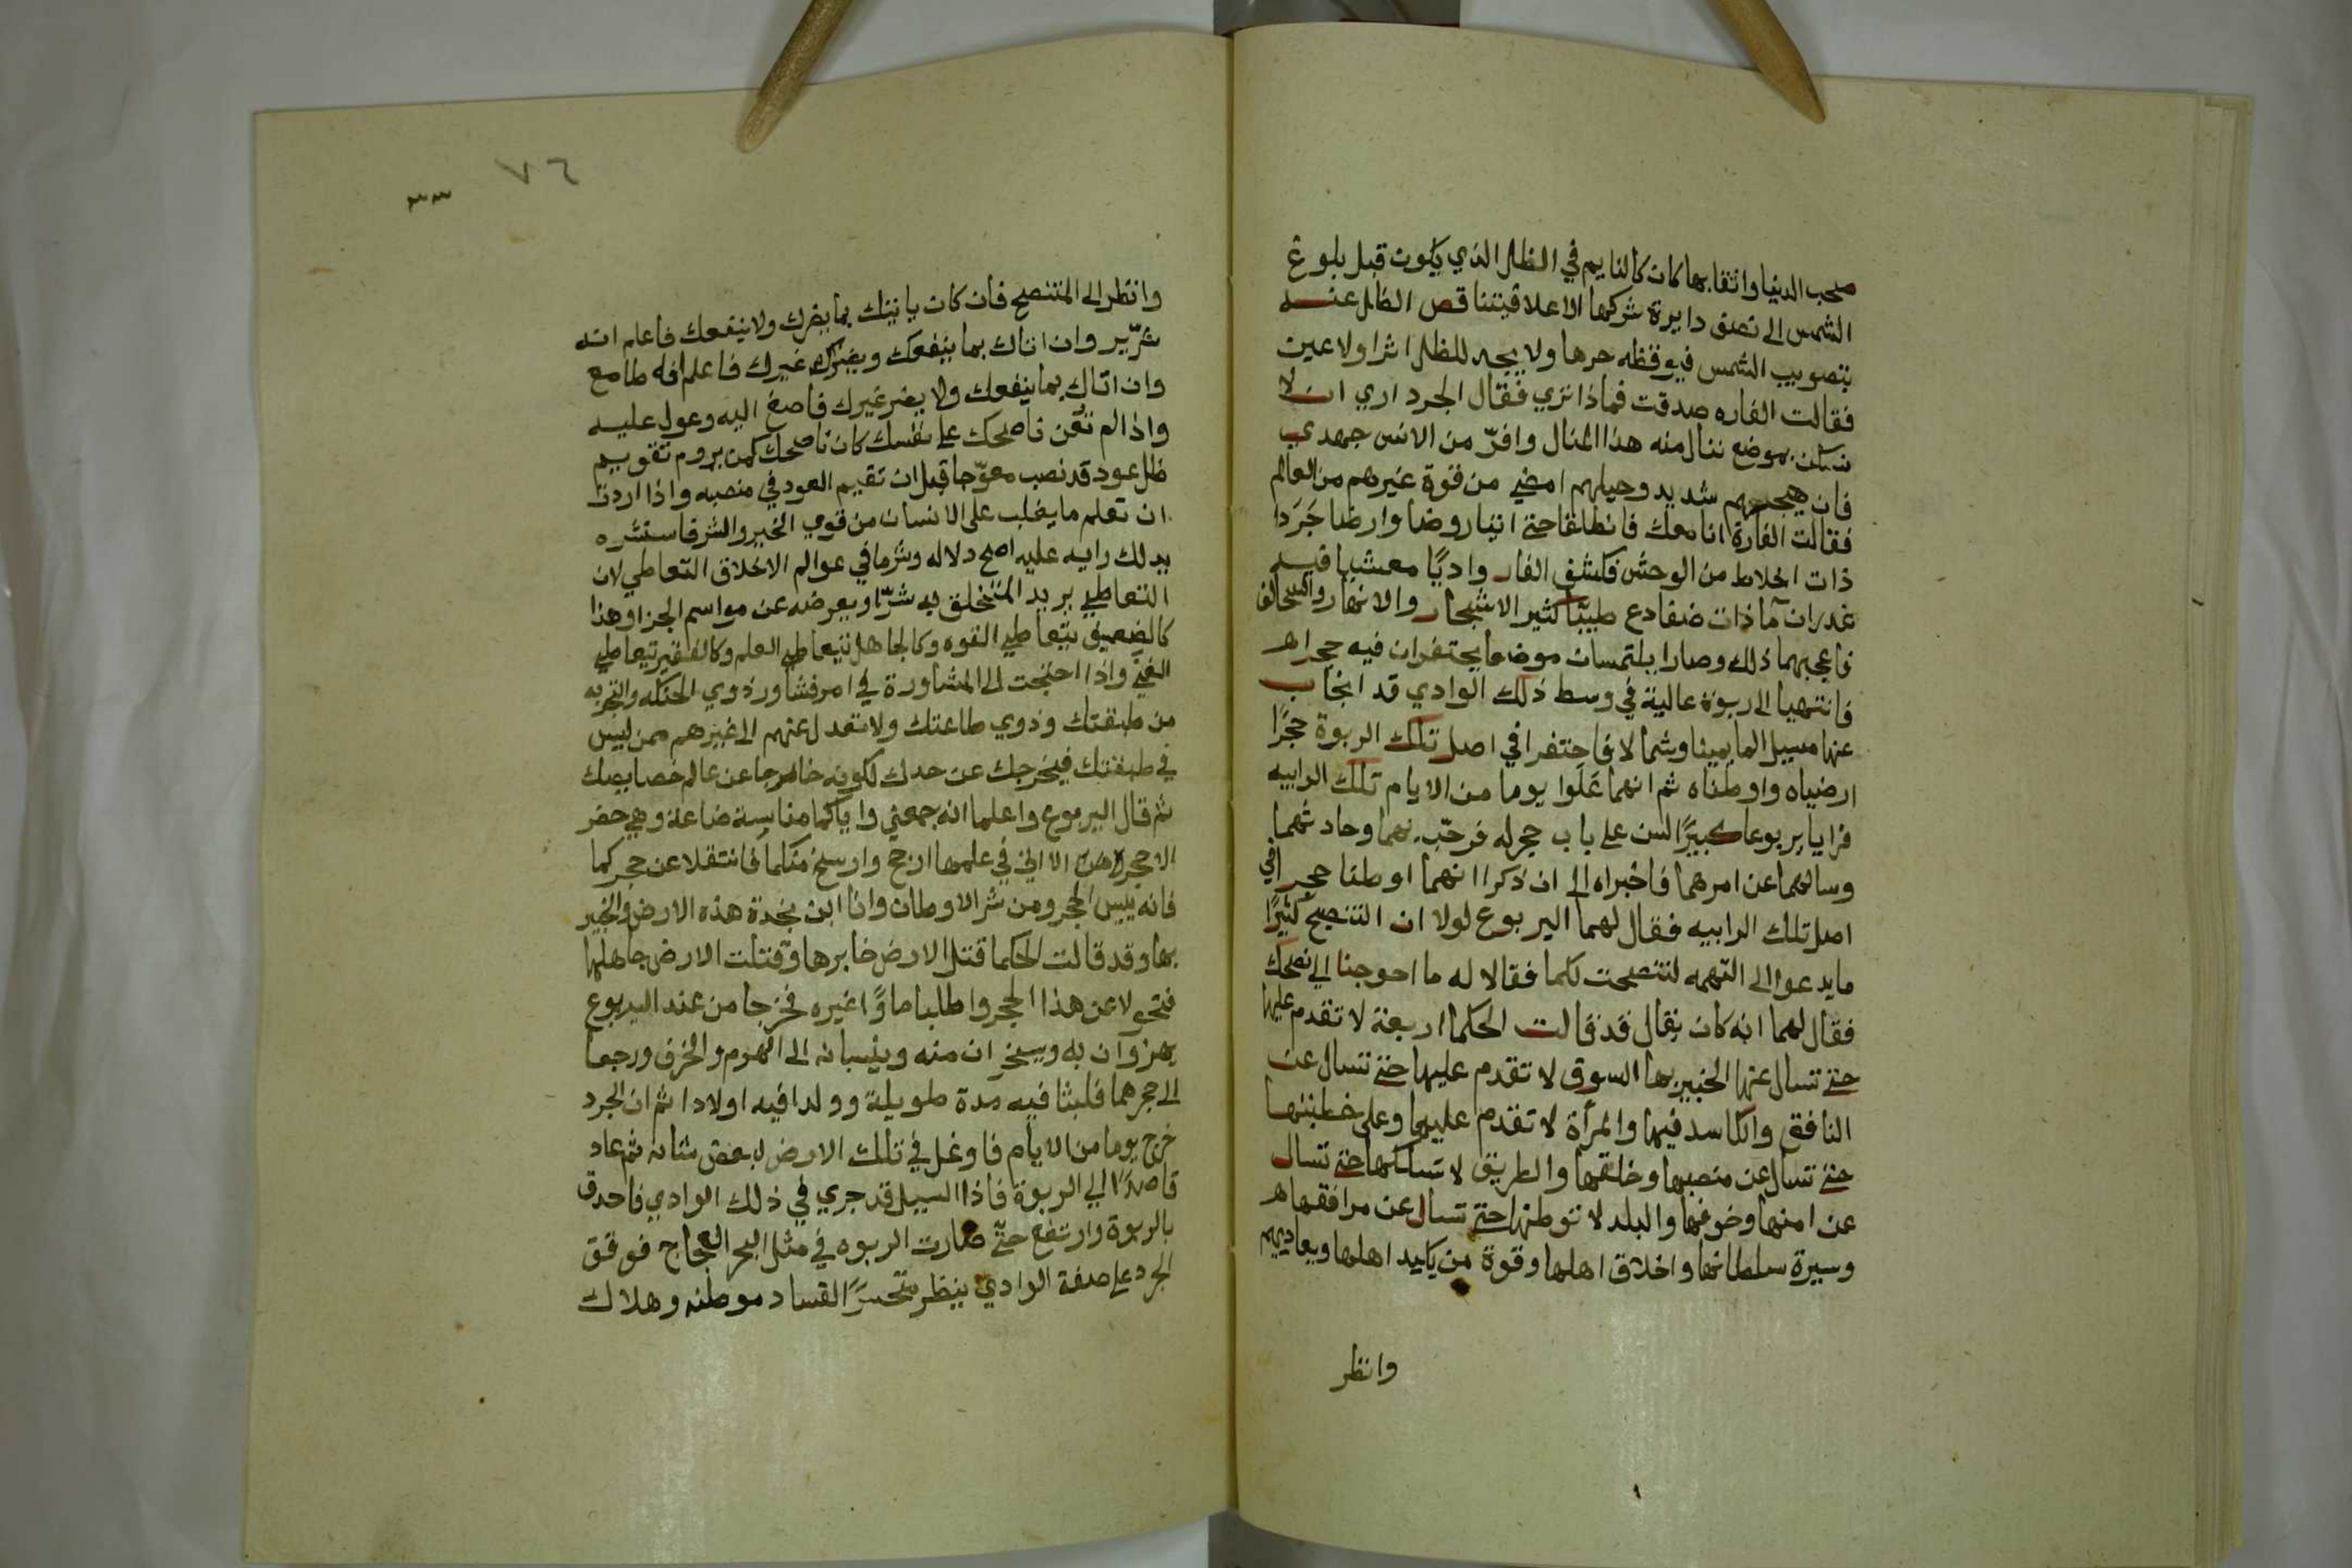 صحب الدنيا واثقا بها كان كالنايم في الظل الذي يكون قبل بلوغ
الشمس الى نصف دايرة شركها الاعلا فيتناقص الظل عنه
بتصويب الشمس فيوقظه حرها ولا يجد للظل اثرا ولا عين
فقالت الفاره صدقت فماذا تري فقال الجرد اري ان لا
نسكن بموضع ننال منه هذا المنال وافرّ من الانس جهدي
فان شديد وحيلهم امضي من قوة غيرهم من العالم
فقالت الفارة انا معك فانطلقا حتى اتيا روضا وارضا جَرَدا
ذات اخلاط من الوحش فكشف الفار واديًا معشبا فيه
غدران مآ ذات ضفادع طيبًا كثير الاشجار والانهار والسحالف
فاعجبهما ذلك وصارا يلتمسان موضعا يحتفران فيه حجرا
فانتهيا الى ربوة عالية في وسط ذلك الوادي قد انجاب
عنها مسيل الما يمينا وشمالا فاحتفرا في اصل تلك الربوة حجرًا
ارضياه واوطناه ثم انهما عَلَوا يوما من الايام تلك الرابيه
فرايا يربوعا كبيرًا السن على باب حجر له فرحّب بهما وحادثهما
وسالهما عن امرهما فاخبراه الى ان ذكرا انهما اوطنا حجرا في
اصل تلك الرابيه فقال لهما اليربوع لولا ان التنصيح كثيرًا
ما يدعوا الى التهمه لتنصحت لكما فقالا له ما احوجنا الى نصحك
فقال لهما انه كان يقال قد قالت الحكما اربعة لا تقدم عليها
حتى تسال عنها الخبير بها السوق لا تقدم عليها حتى تسال عن
النافق والكاسد فيها والمرأة لا تقدم عليها وعلى خطبتها
حتى تسال عن منصبها وخلقها والطريق لا تسلكها حتى تسال
عن امنها وخوفها والبلد لا توطنها حتى تسال عن مرافقها
وسيرة سلطانها واخلاق اهلها وقوة من يكايد اهلها ويعاديهم
وانظر
٧٦
٣٣
وانظر الى المتنصح فان كان ياتيك بما يضرك ولا ينفعك فاعلم انه
شرّير وان اتاك بما ينفعك ويضر غيرك فاعلم انه طامع
وان اتاك بما ينفعك ولا يضر غيرك فاصغ اليه وعول عليه
واذا لم تعن ناصحك على نفسك كان ناصحك كمن يروم تقويم
ظل عود قد نصب معوّجا قبل ان تقيم العود في منصبه واذا اردت
ان تعلم ما يغلب على الانسان من قوي الخير والشر فاستشره
يدلك رايه عليه اصح دلاله وشر ما في عوالم الاخلاق التعاطي لان
التعاطي يريد المتخلق به شرّا ويعرضه عن مواسم الجزا وهذا
كالضعيف يتعاطي القوه وكالجاهل يتعاطي العلم وكالفقير يتعاطي
الغني واذا احتجت الى المشاورة في امر فشاور ذوي الحنكه والتجربه
من طبقتك وذوي طاعتك ولا تعدل عنهم الى غيرهم ممن ليس
في طبقتك فيخرجك عن حدك لكونه خارجا عن عالم خصايصك
ثم قال اليربوع واعلما انه جمعني واياكما مناسبة ضاعة وهي حفر
الاحجره الا اني في علمها ارجح وارسخ منكما فانتقلا عن حجركما
فانه بيس الحجر ومن شر الاوطان وانا ابن بجدة هذه الارض والخبير
بها وقد قالت الحكما قتل الارض خابرها وقتلت الارض جاهلها
فتحولا عن هذا الحجر واطلبا ماوًا غيره فخرجا من عند اليربوع
يهزوآن به ويسخران منه وينسبانه الى الهرم والخرف ورجعا
الى حجرهما فلبثا فيه مدة طويلة وولدا فيه اولادا ثم ان الجرد
خرج يوما من الايام فاوغل في تلك الارض لبعض شانه ثم عاد
قاصدًا الى الربوة فاذا السيل قد جري في ذلك الوادي فاحدق
بالربوة وارتفع حتّى صارت الربوه في مثل البحر العجاج فوقف
الجرد على صفة الوادي ينظر متحسرًا لفساد موطنه وهلاك